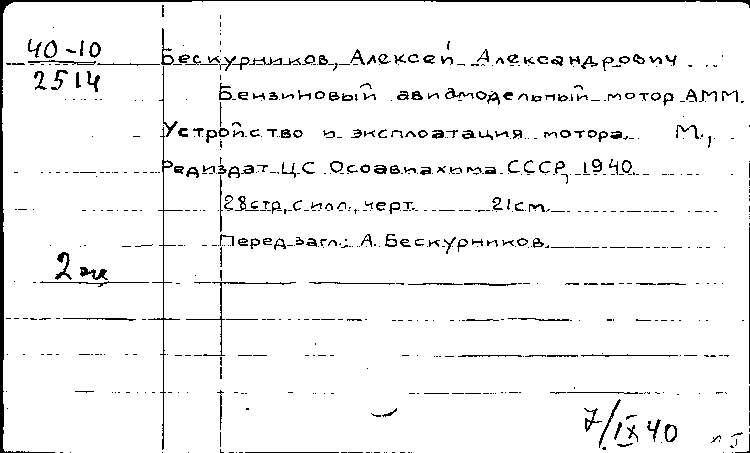 40-10
2514
Бескурников, Алексей Александрович.
Бензиновый авиамодельный мотор АММ.
Устройство и эксплоатация мотора. М.,
Редиздат ЦС Осоавиахима СССР, 1940.
28 стр. с илл., черт. 21 см.
Перед загл.: А. Бескурников.
2 эк
7/IX 40